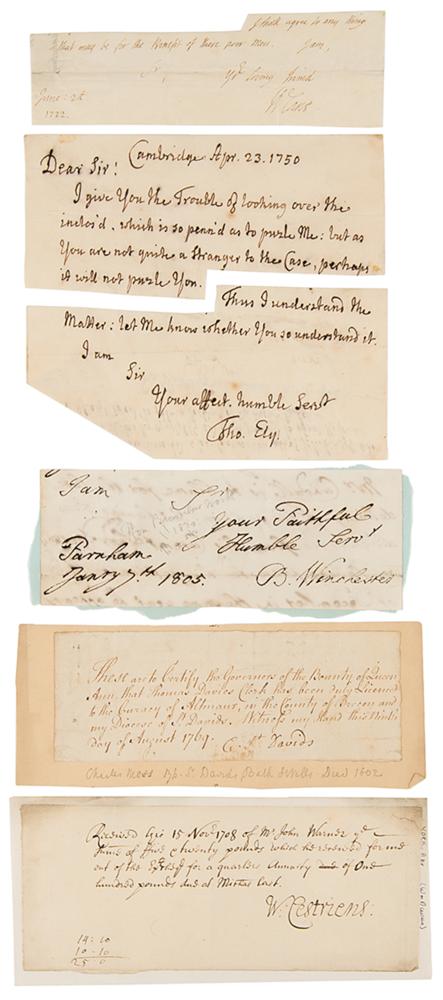 I shall agree to any thing
that may be for the benefit of these poor Men. I am,
Sr, Yor loving friend
June: 2d
1722.
Cambridge Apr. 23. 1750
Dear Sir!
I give You the Trouble of looking over the
inclos'd, which is so penn'd as to puzle Me: but as
You are not quite a Stranger to the Case, perhaps
it will not puzle You.
Thus I understand the
Matter: let Me know whether You so understand it.
I am
Sir
Your affect. humble Servt
Tho. Ely.
I am Sir
Your Faithful
Farnham Humble Servt
Janry 7th 1805. B. Winchester
These are to Certify the Governors of the Bounty of Queen
Ann that Thomas Davies Clerk has been duly Licenced
to the Curacy of Altmaur, in the County of Brecon and
my Diocese of St Davids. Witness my Hand this Ninth
day of August 1767. C. St Davids
Charles Moss Bp. St Davids Bath & Wells Died 1802
Received 15 Novr 1708 of Mr John Warner ye
Summe of five & twenty pounds which he received for me
out of the for a quarters Annuity due of One
hundred pounds due at Michas last.
W. Cestriens:
14:10
10-10
25 0